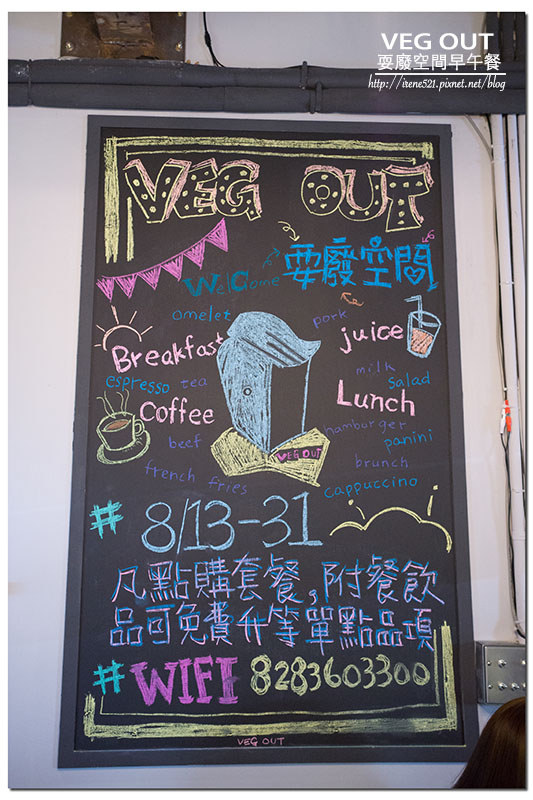 VEG OUT
耍廢空間早午餐
http://irene521.pixnet.net/blog
VEG OUT
Welcome 耍廢空間
omelet pork
Breakfast juice
milk
espresso tea salad
Coffee Lunch
hamburger
beef panini
VEG OUT
french fries brunch
cappuccino
# 8/13-31
凡點購套餐,附餐飲
品可免費升等單點品項
# WIFI 8283603300
VEG OUT